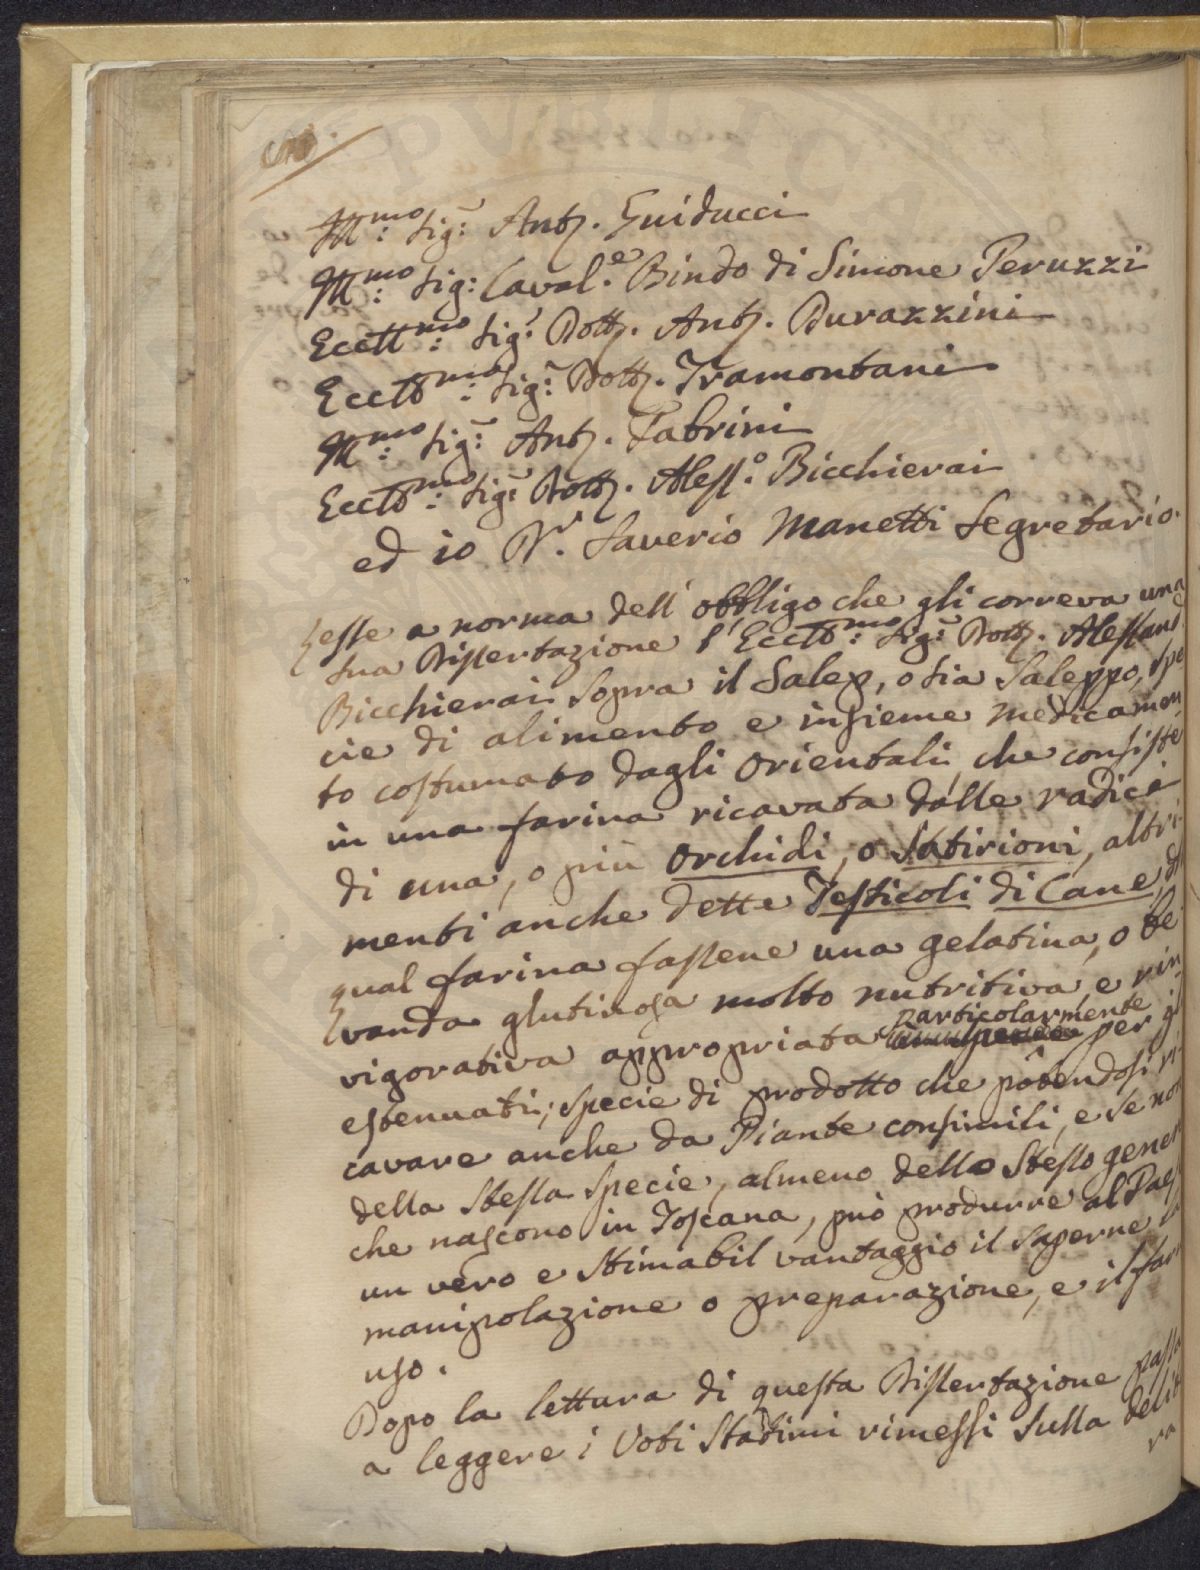 Ill.mo: Sig: Ant. Guiducci
Ill.mo: Sig: Caval.e Bindo di Simone Peruzzi
Eccll.mo: Sig: Dott. Ant. Durazzini
Eccll.mo: Sig: Dott. Tramontani
Ill.mo: Sig: Ant. Fabrini
Eccll.mo: Sig: Dott. Aless.o Bicchierai
ed io Dr. Saverio Manetti Segretario.
Lesse a norma dell' obbligo che gli correva una
sua Dissertazione l'Eccll.mo: Sig: Dott. Alessand
Bicchierai sopra il Salep, o sia Saleppo, spe
cie di alimento e insieme medicamen
to costumato dagli Orientali che consiste
in una farina ricavata dalle radici
di una, o più Orchidi, o Satirioni, altri
menti anche dette Testicoli di Cane, di
qual farina fassene una gelatina, o be
vanda glutinosa molto nutritiva e rin
vigorativa appropriata particolarmente per gl
estenuati; specie di prodotto che potendosi ri
cavare anche da Piante consimili, e se non
della stessa specie, almeno dello stesso gener
che nascono in Toscana, può produrre al Paes
un vero e stimabil vantaggio il saperne la
manipolazione o preparazione, e il far
uso.
Dopo la lettura di questa Dissertazione passò
a leggere i Voti Statini rimessi sulla delib
ra